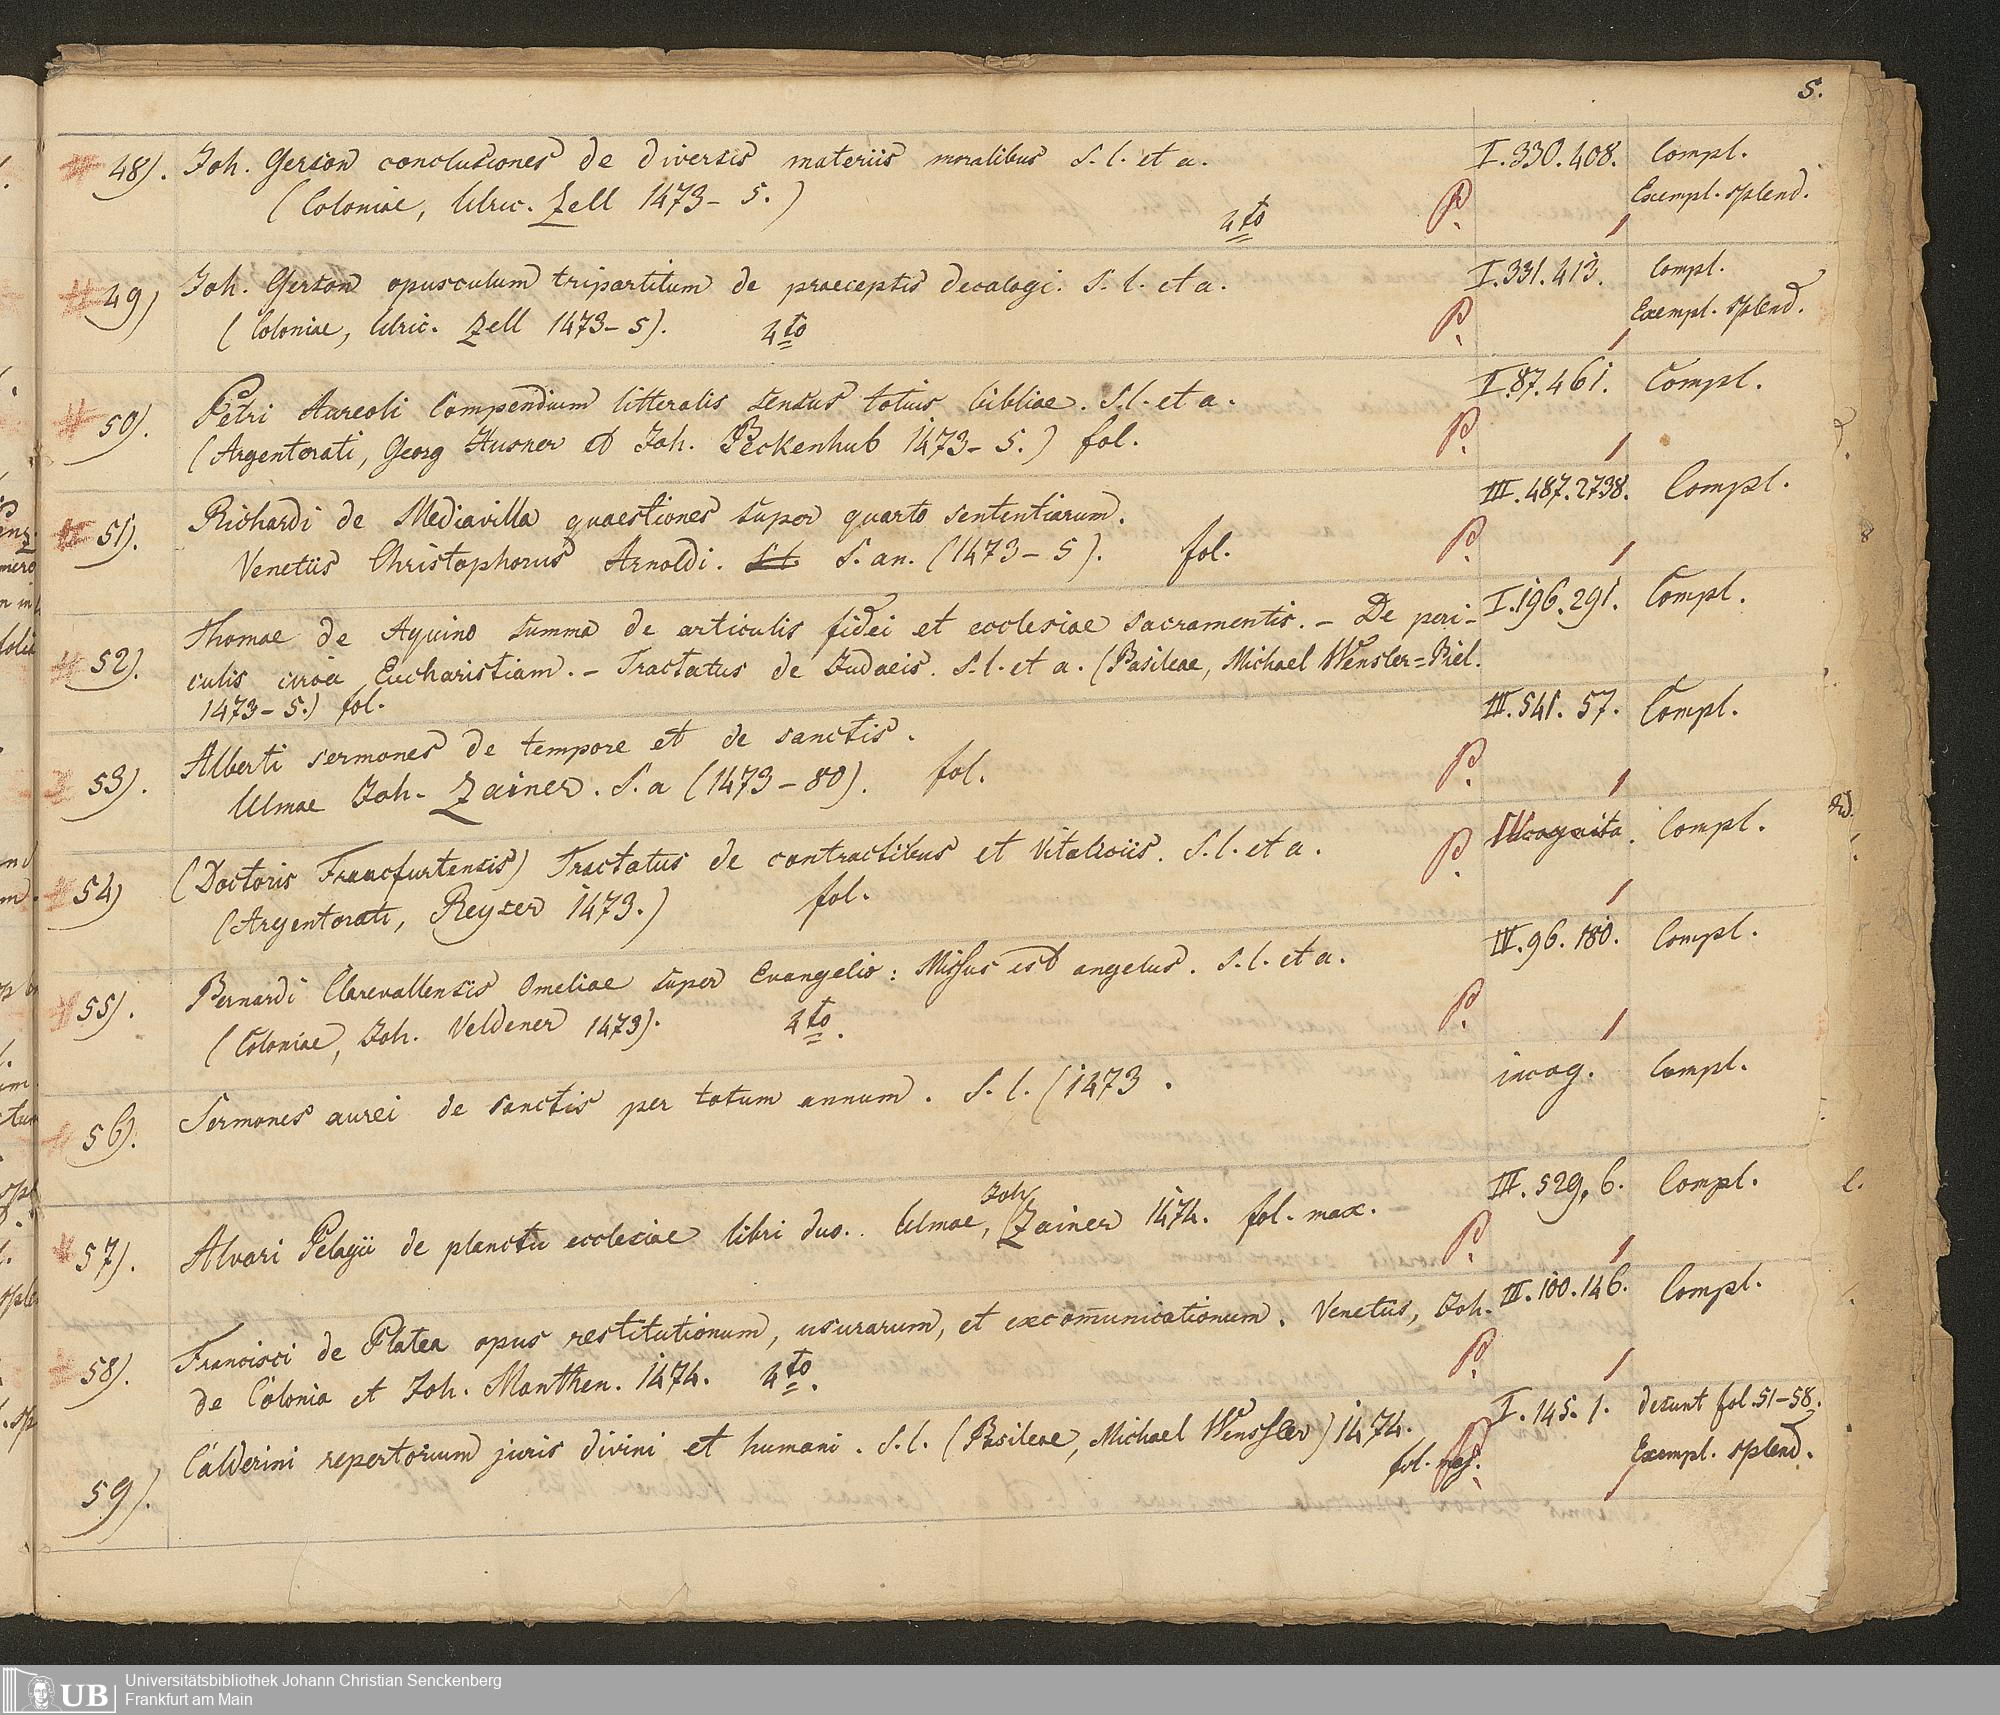 5.
48). Joh. Gerson conclusiones de diversis materiis moralibus S. l. et a. I. 330. 408. Compl.
(Coloniae, Ulric. Zell 1473-5.) 4to P. Exempl. splend.
49) Joh. Gerson opusculum tripartitum de praeceptis decalogi. S. l. et a. I. 331. 413. Compl.
(Coloniae, Ulric. Zell 1473-5). 4to P. Exempl. splend.
50). Petri Aureoli Compendium litteralis sensus totius bibliae. S. l. et a. II. 87. 461. Compl.
(Argentorati, Georg Husner et Joh. Beckenhub 1473-5.) fol. P.
51). Richardi de Mediavilla quaestiones super quarto sententiarum. III. 487. 2738. Compl.
Venetiis Christophorus Arnoldi. S. an. (1473-5). fol. P.
52). Thomae de Aquino summa de articulis fidei et ecclesiae sacramentis. - De peri- I. 196. 291. Compl.
culis circa Eucharistiam. - Tractatus de Judaeis. S. l. et a. (Basileae, Michael Wensler=Biel.
1473-5.) fol.
53). Alberti sermones de tempore et de sanctis. III. 541. 57. Compl.
Ulmae Joh. Zainer. S. a (1473-80). fol. P.
54) (Doctoris Francfurtensis) Tractatus de contractibus et Vitaliciis. S. l. et a. P. Incognita. Compl.
(Argentorati, Reyser 1473.) fol.
55). Bernardi Clarevallensis Omeliae super Evangelio: Missus est angelus. S. l. et a. IV. 96. 180. Compl.
(Coloniae, Joh. Veldener 1473). 4to. P.
56). Sermones aurei de sanctis per totum annum. S. l. (1473. incog. Compl.
57). Alvari Pelagii de planctu ecclesiae libri duo.. Ulmae, Joh Zainer 1474. fol. max. P. III. 529, 6. Compl.
58). Francisci de Platea opus restitutionum, usurarum, et excom̄unicationum. Venetiis, Joh. III. 100. 146. Compl.
de Colonia et Joh. Manthen. 1474. 4to. P.
59). Calderini repertorium juris divini et humani. S. l. (Basileae, Michael Wenssler) 1474. I. 145. 1. desunt fol. 51-58.
fol. maj. P. Exempl. splend.
UB Universitätsbibliothek Johann Christian Senckenberg
Frankfurt am Main